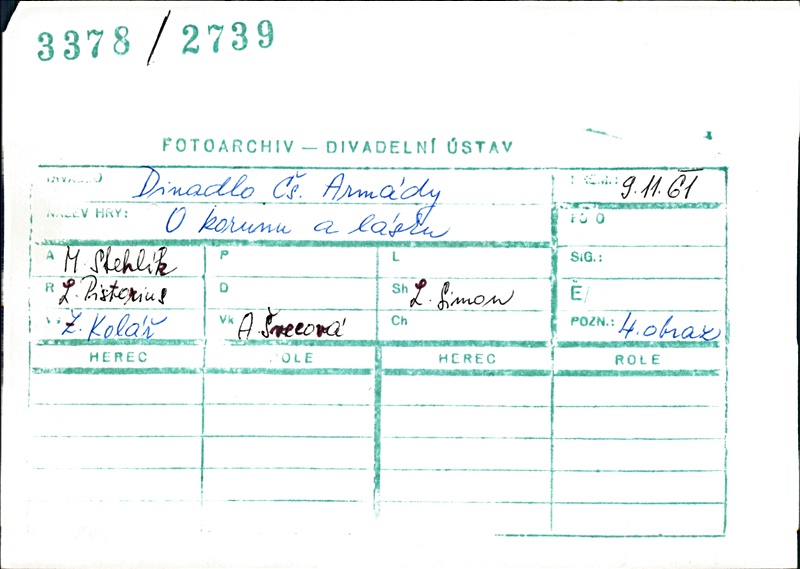 3378 / 2739
FOTOARCHIV — DIVADELNÍ ÚSTAV
Divadlo Čs. Armády
9.11.61
NÁZEV HRY: O korunu a lásku
A M. Stehlík P L SiG.:
R L. Pistorius D Sh L. Simon
Z. Kolář Vk A. Švecová Ch POZN.: 4. obraz
HEREC ROLE HEREC ROLE